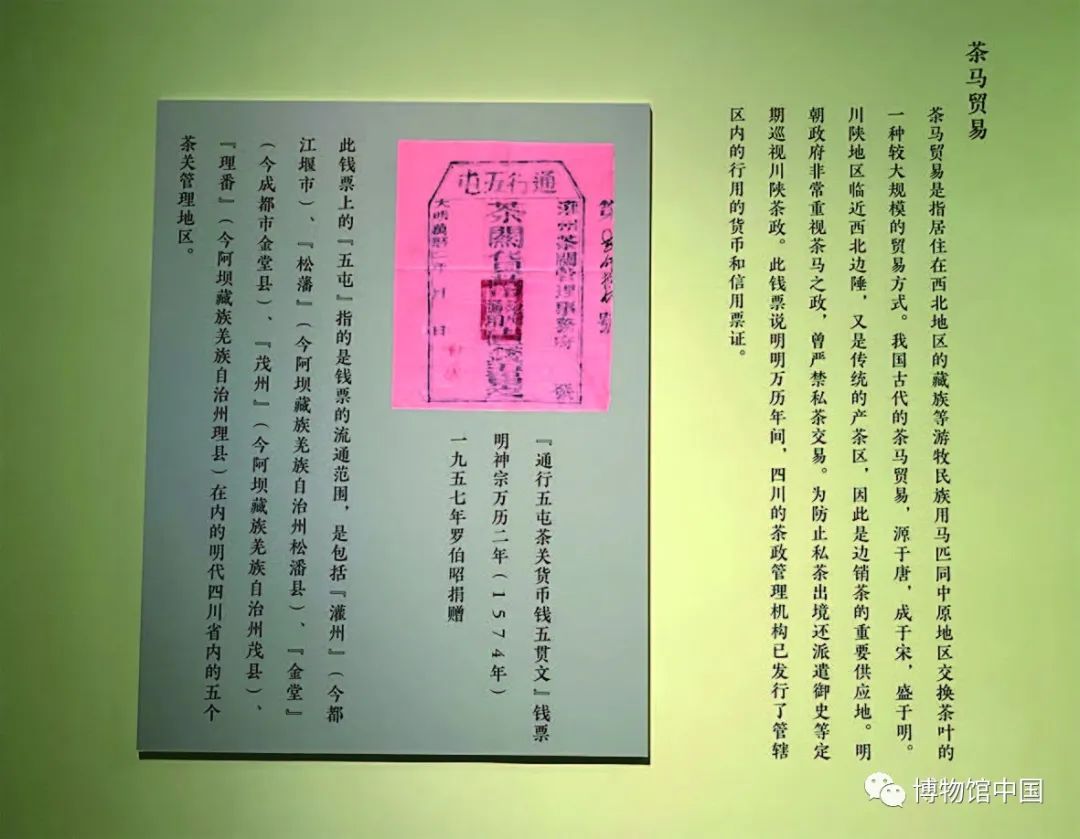 茶马贸易
茶马贸易是指居住在西北地区的藏族等游牧民族用马匹同中原地区交换茶叶的
一种较大规模的贸易方式。我国古代的茶马贸易，源于唐，成于宋，盛于明。
川陕地区临近西北边陲，又是传统的产茶区，因此是边销茶的重要供应地。明
朝政府非常重视茶马之政，曾严禁私茶交易。为防止私茶出境还派遣御史等定
期巡视川陕茶政。此钱票说明明万历年间，四川的茶政管理机构已发行了管辖
区内的行用的货币和信用票证。
通行五屯
茶關货
大明萬歷二年 月 日
『通行五屯茶关货币钱五贯文』钱票
明神宗万历二年（1574年）
一九五七年罗伯昭捐赠
此钱票上的『五屯』指的是钱票的流通范围，是包括『灌州』（今都
江堰市）、『松藩』（今阿坝藏族羌族自治州松潘县）、『金堂』
（今成都市金堂县）、『茂州』（今阿坝藏族羌族自治州茂县）、
『理番』（今阿坝藏族羌族自治州理县）在内的明代四川省内的五个
茶关管理地区。
博物馆中国